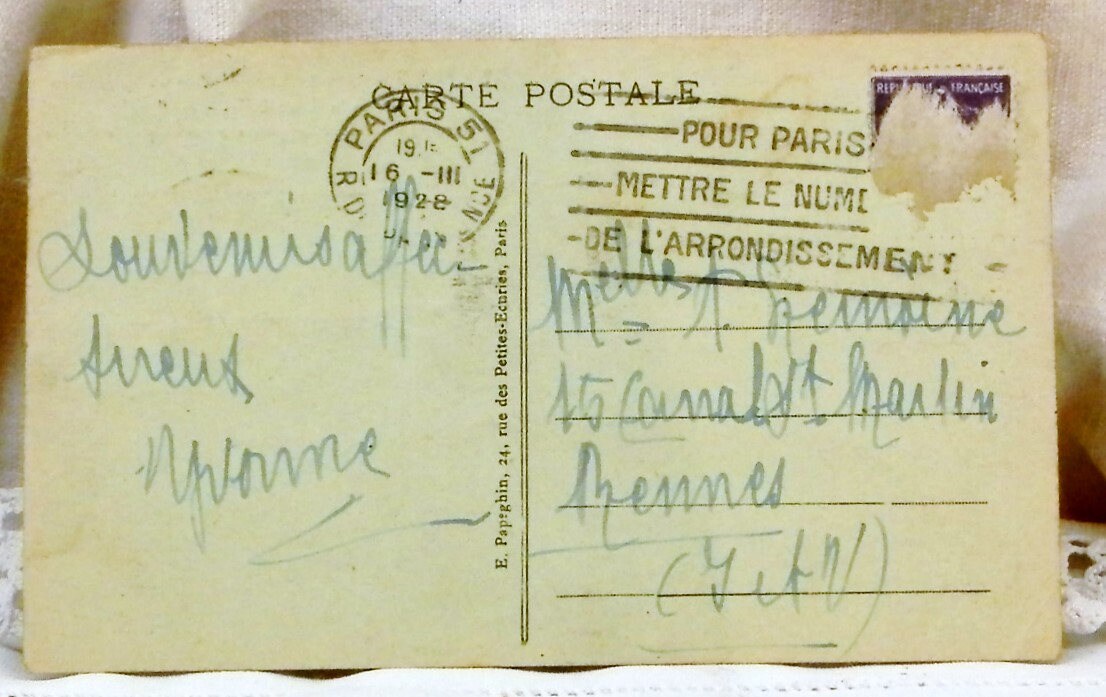 CARTE POSTALE
REPUBLIQUE FRANÇAISE
PARIS 51
R. DE PROVENCE
16 -III
1928
POUR PARIS
METTRE LE NUME
DE L'ARRONDISSEMENT
Souvenirs affec
tueux
Yvonne
E. Papeghin, 24, rue des Petites-Ecuries, Paris
Melle
Canal St Martin
Rennes
(I et V)